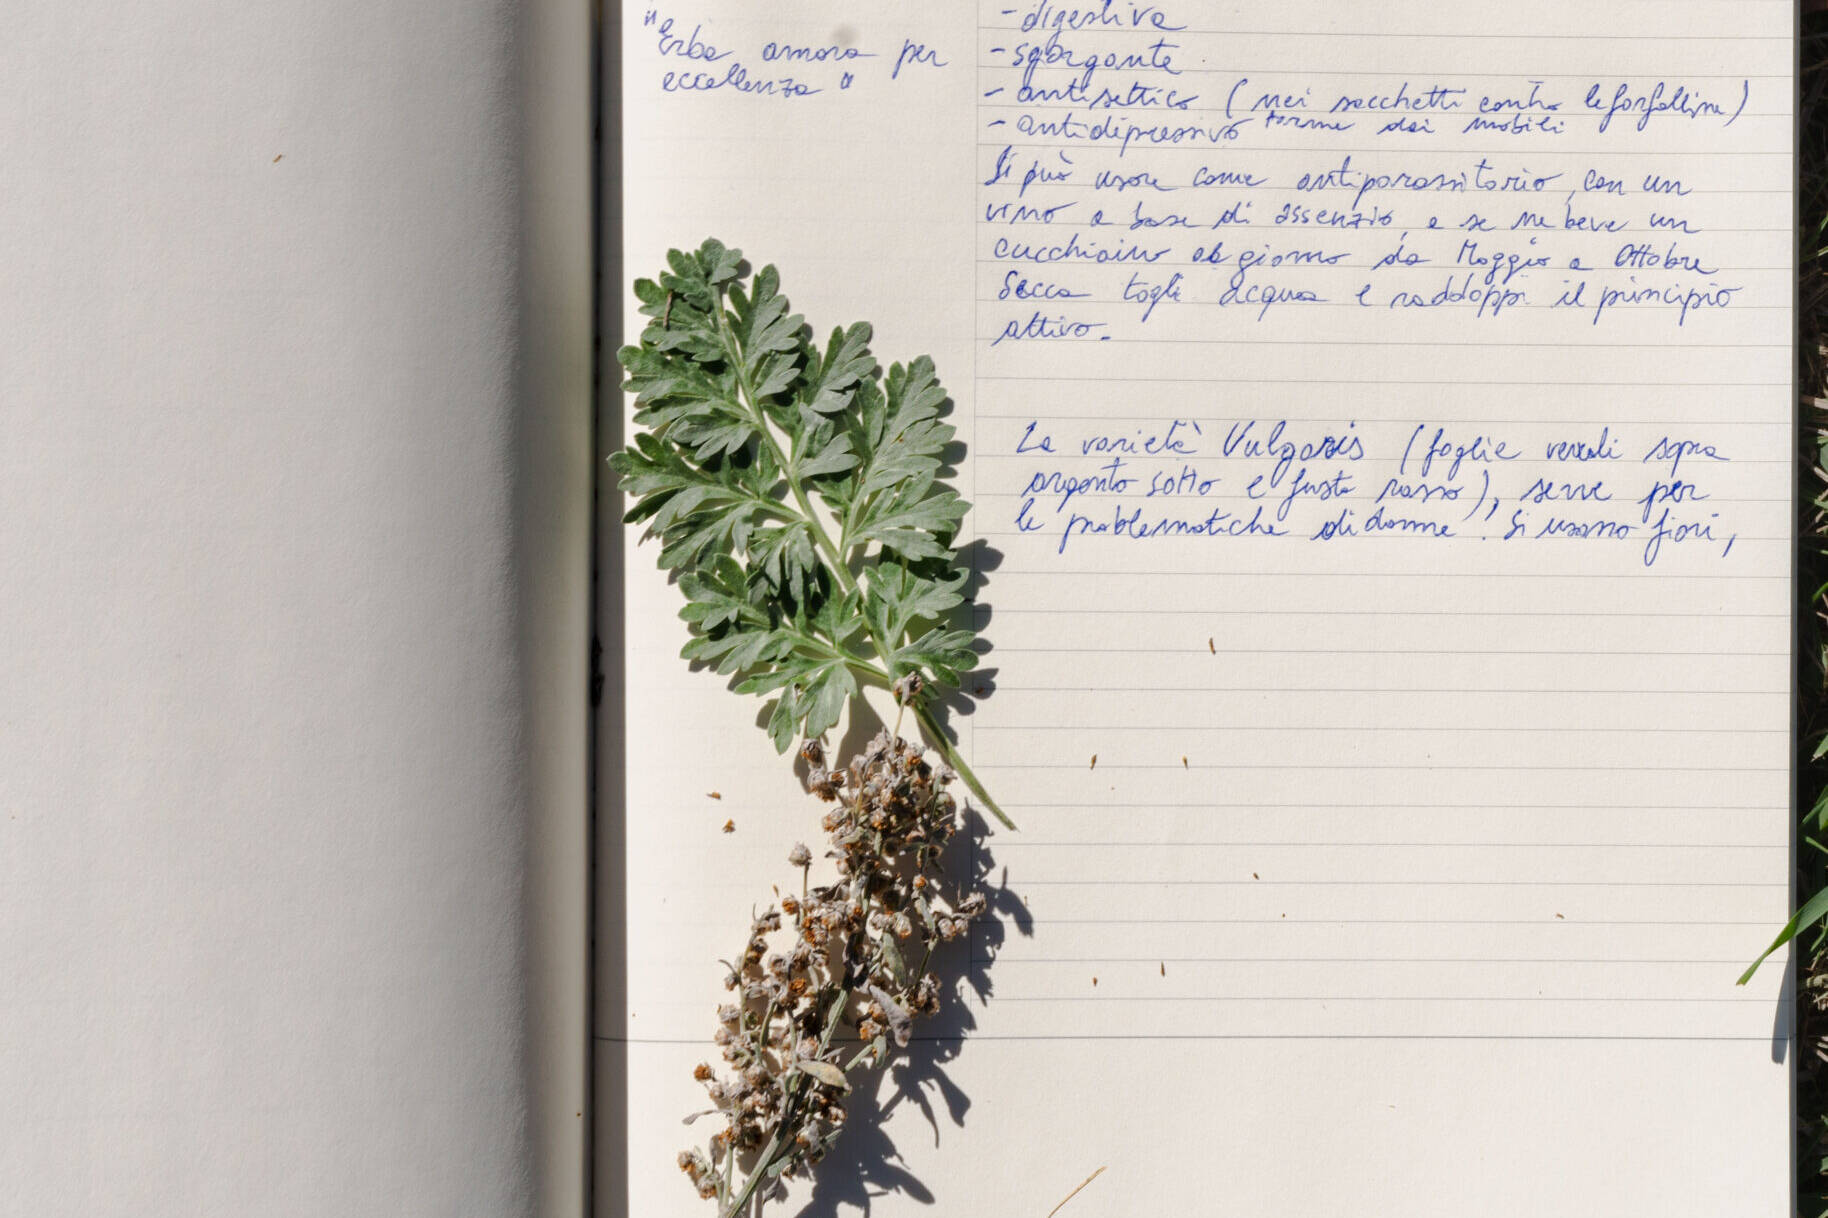 "Erba amara per
eccellenza"
- digestiva
- sgorgante
- antisettico (nei sacchetti contro le farfalline)
- antidepressivo tarme dei mobili
Si può usare come antiparassitario, con un
vino a base di assenzio, e se ne beve un
cucchiaino al giorno da Maggio a Ottobre
Secca togli acqua e raddoppi il principio
attivo.
La varietà Vulgaris (foglie verdi sopra
argento sotto e fusto rosso), serve per
le problematiche di donne. Si usano fiori,